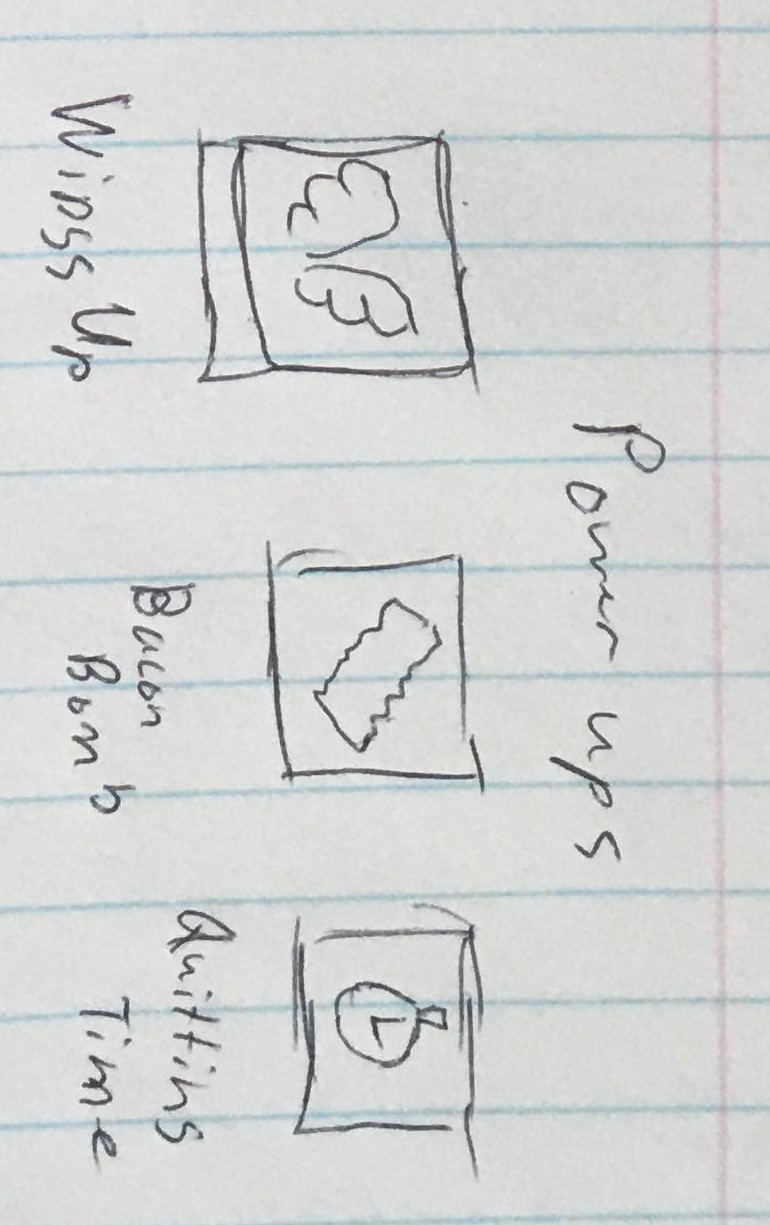 Power ups
Wings Up
Bacon
Bomb
Quitting
Time